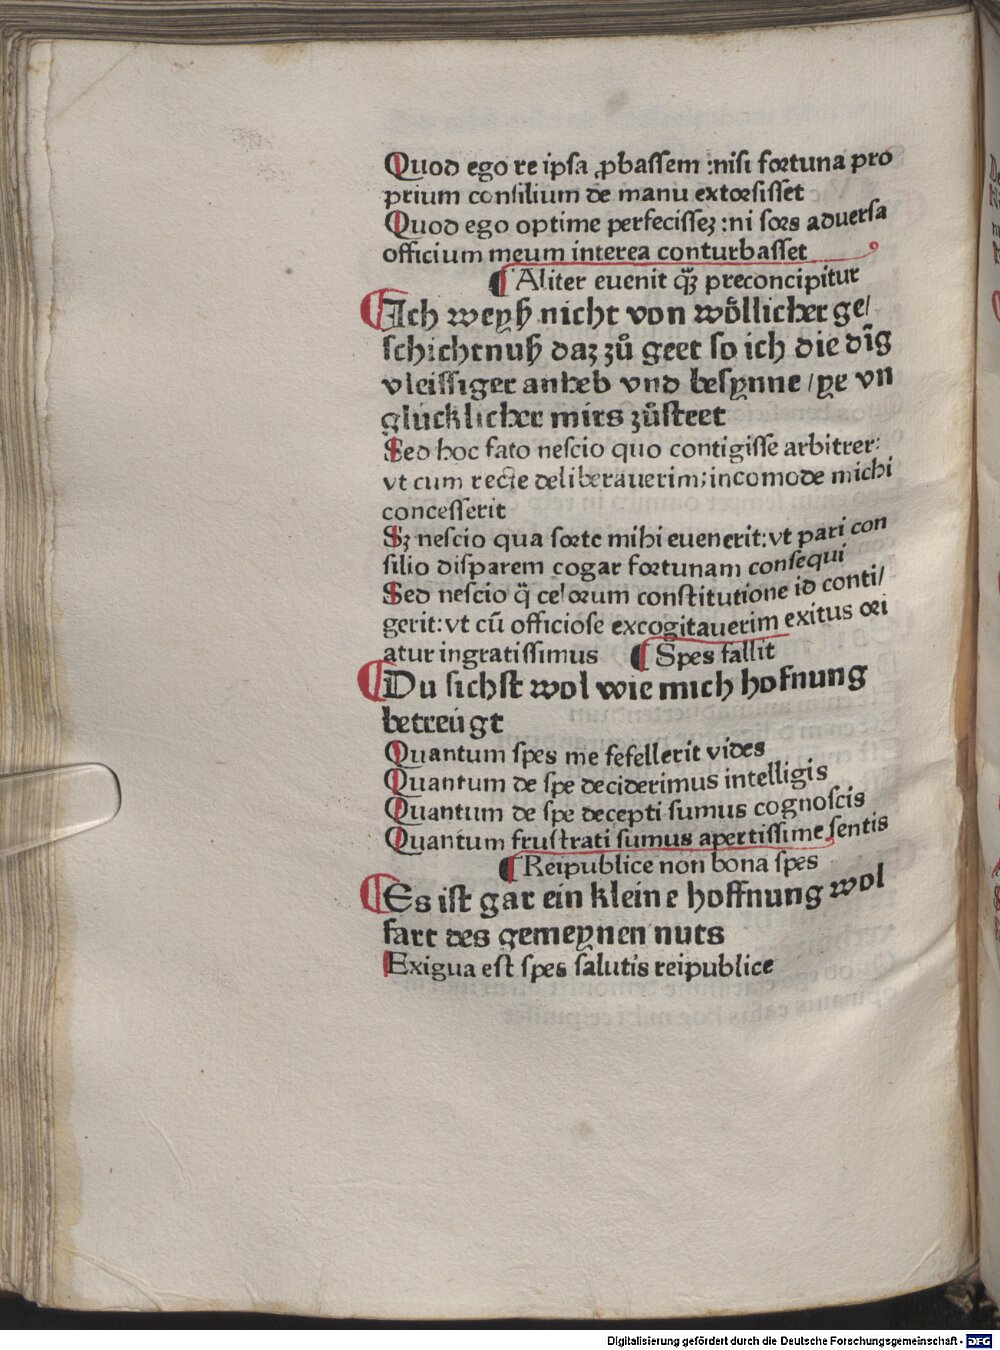 Quod ego re ipsa ꝓbassem :nisi fortuna pro
prium consilium de manu extorsisset
Quod ego optime perfecisseʒ :ni sors aduersa
officium meum interea conturbasset
¶ Aliter euenit q̃ʒ preconcipitur
¶ Ich weyß nicht von woͤllicher ge/
schichtnuß daz zuͦ geet so ich die dĩg
vleissiger anheb vnd besynne / ye vn
glucklicher mirs zuͦsteet
Sed hoc fato nescio quo contigisse arbitrer:
vt cum recte deliberauerim; incomode michi
concesserit
Sʒ nescio qua sorte mihi euenerit: vt pari con
silio disparem cogar fortunam consequi
Sed nescio q̃ celorum constitutione id conti/
gerit: vt cũ officiose excogitauerim exitus ori
atur ingratissimus ¶ Spes fallit
¶ Du sichst wol wie mich hofnung
betreugt
Quantum spes me fefellerit vides
Quantum de spe deciderimus intelligis
Quantum de spe decepti sumus cognoscis
Quantum frustrati sumus apertissime sentis
¶ Reipublice non bona spes
¶ Es ist gar ein kleine hoffnung wol
fart des gemeynen nuts
Exigua est spes salutis reipublice
Digitalisierung gefördert durch die Deutsche Forschungsgemeinschaft - DFG